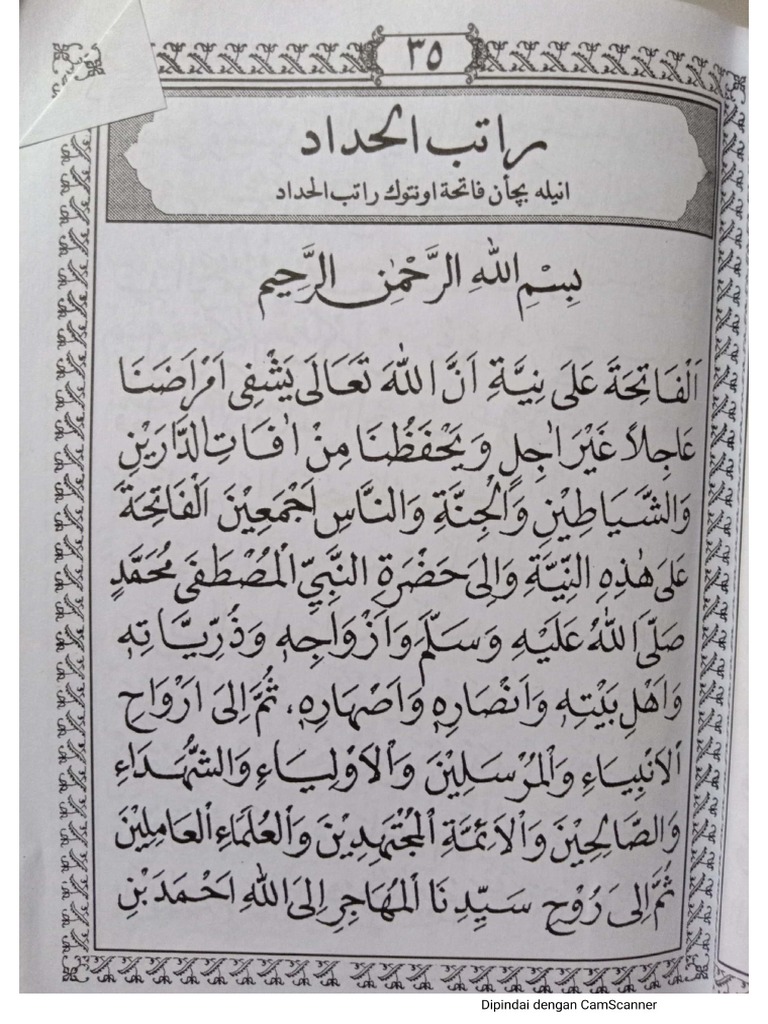 ٣٥
راتب الحداد
انيله بچأن فاتحة اونتوك راتب الحداد
بِسْمِ اللهِ الرَّحْمٰنِ الرَّحِيمِ
اَلْفَاتِحَةَ عَلَى نِيَّةِ اَنَّ اللهَ تَعَالَى يَشْفِى اَمْرَاضَنَا
عَاجِلاً غَيْرَ اٰجِلٍ وَيَحْفَظُنَا مِنْ اٰفَاتِ الدَّارَيْنِ
وَالشَّيَاطِيْنِ وَالْجِنَّةِ وَالنَّاسِ اَجْمَعِيْنَ اَلْفَاتِحَةَ
عَلَى هٰذِهِ النِّيَّةِ وَاِلَى حَضْرَةِ النَّبِيِّ الْمُصْطَفَى مُحَمَّدٍ
صَلَّى اللهُ عَلَيْهِ وَسَلَّمَ وَاَزْوَاجِهِ وَذُرِّيَّاتِهِ
وَاَهْلِ بَيْتِهِ وَاَنْصَارِهِ وَاَصْهَارِهِ، ثُمَّ اِلَى اَرْوَاحِ
الْاَنْبِيَاءِ وَالْمُرْسَلِيْنَ وَالْاَوْلِيَاءِ وَالشُّهَدَاءِ
وَالصَّالِحِيْنَ وَالْاَئِمَّةِ الْمُجْتَهِدِيْنَ وَالْعُلَمَاءِ الْعَامِلِيْنَ
ثُمَّ اِلَى رُوْحِ سَيِّدِنَا الْمُهَاجِرِ اِلَى اللهِ اَحْمَدَ بْنِ
Dipindai dengan CamScanner